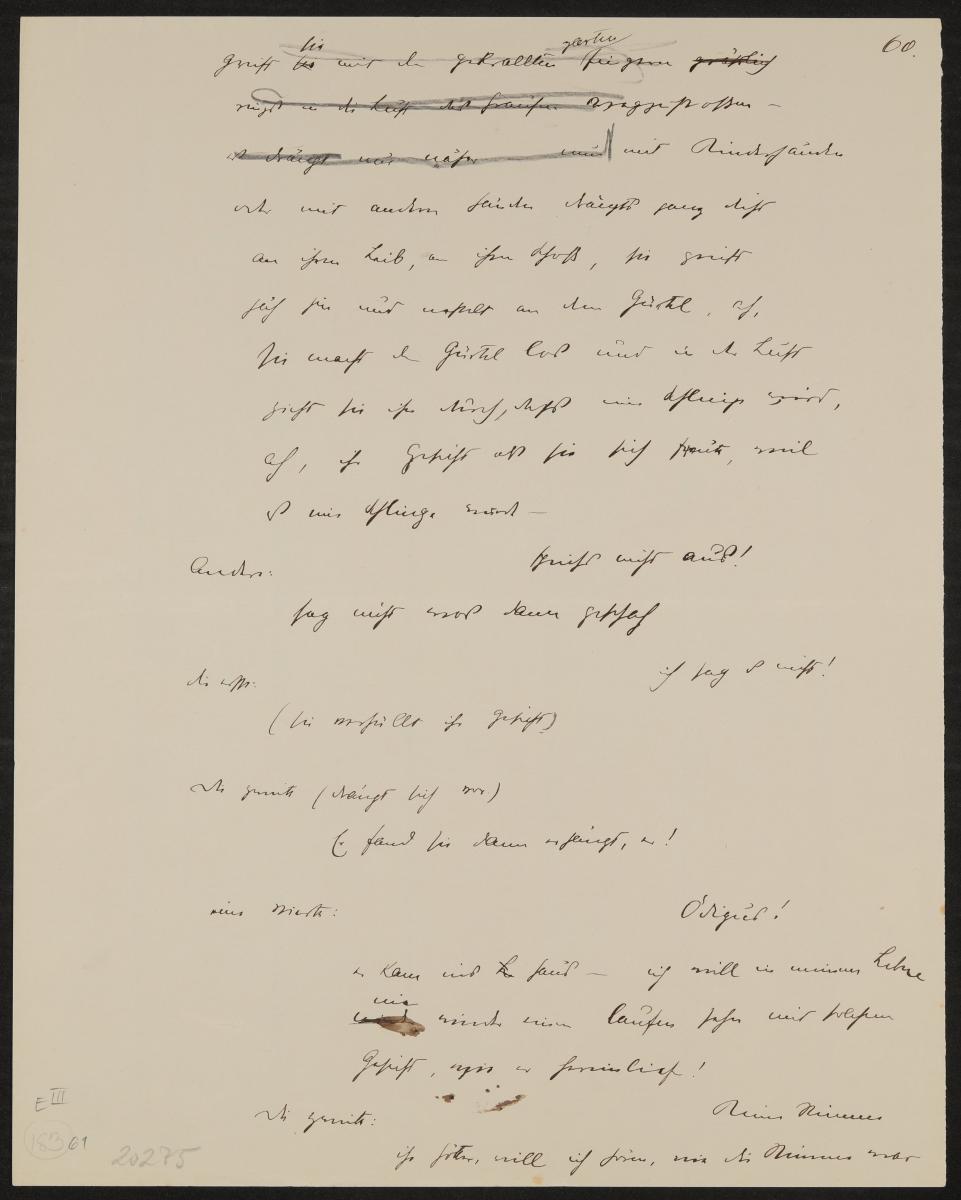 60.
greift sie mit den gekrallten zarten fingern gräßlich
ringt in die Luft das Grausen weggestoßen –
es drängt nur näher – und mit Kinderhänden
oder mit andern Händen drängts ganz dicht
an ihren Leib, an ihren Schoß, sie greift
jäh hin und nestelt an dem Gürtel, ach,
sie macht den Gürtel los und in der Luft
zieht sie ihn durch, dass eine Schlinge wird,
ach, ihr Gesicht als sie sich freute, weil
es eine Schlinge ward –
Andere: Sprichs nicht aus!
sag nicht was dann geschah
die erste: ich sag es nicht!
(sie verhüllt ihr Gesicht)
die zweite (drängt sich vor)
Er fand sie dann erhängt, er!
eine vierte: Ödipus!
er kam ins Haus – ich will in meinem Leben
nie wieder einen laufen sehen mit solchem
Gesicht, wie er hereinlief!
die zweite: Keine Stimme
ihr Götter, will ich hören, wie die Stimme war
E III
183 61
20275